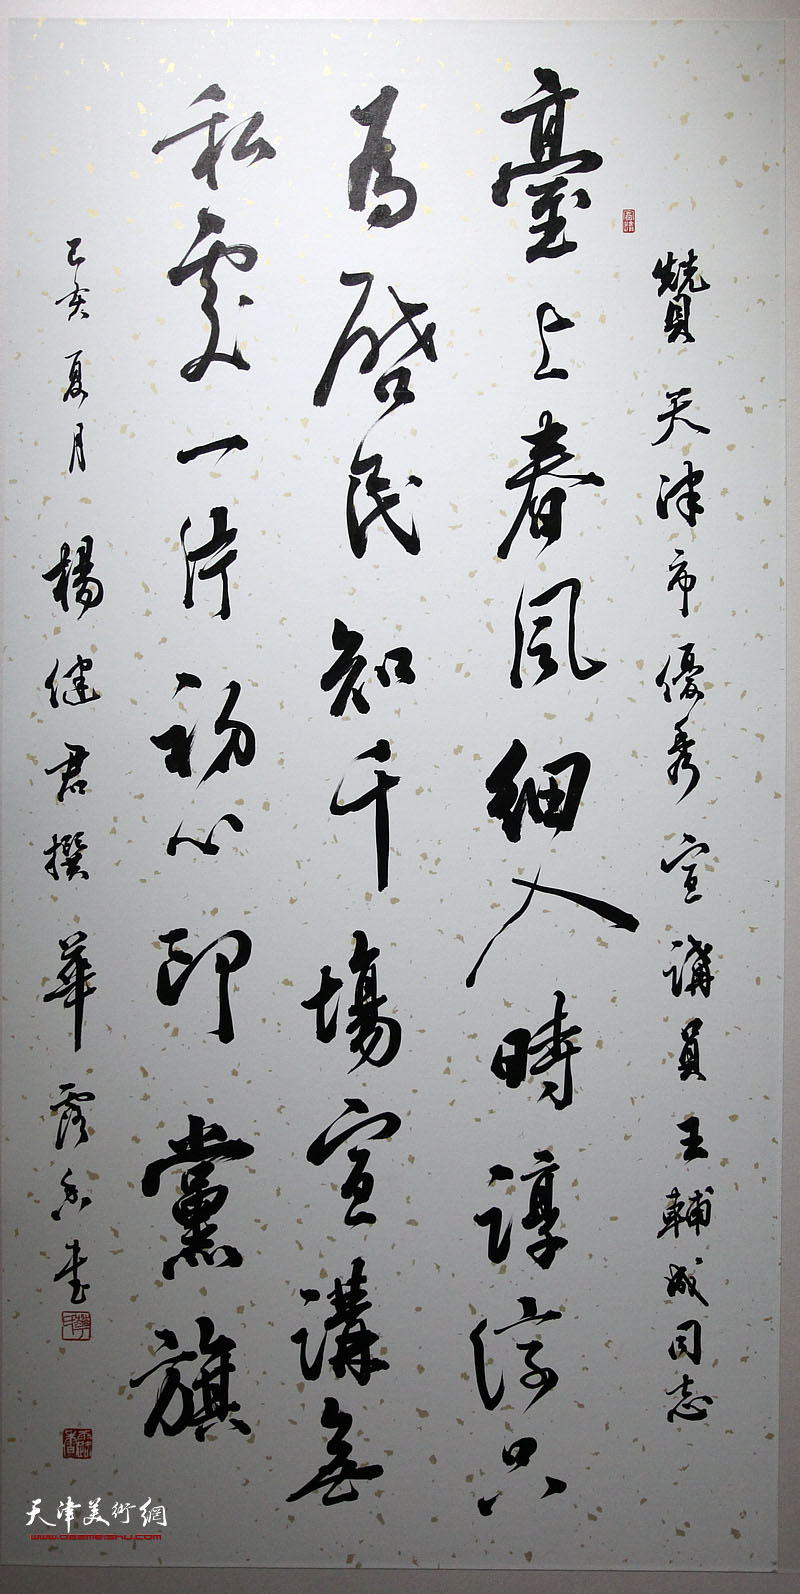 贊天津市優秀宣講員王輔成同志
臺上春風細入時諄諄只
為啓民知千場宣講無
私處一片初心印黨旗
己亥夏月楊健君撰華露香書
天津美術網
www.022meishu.com